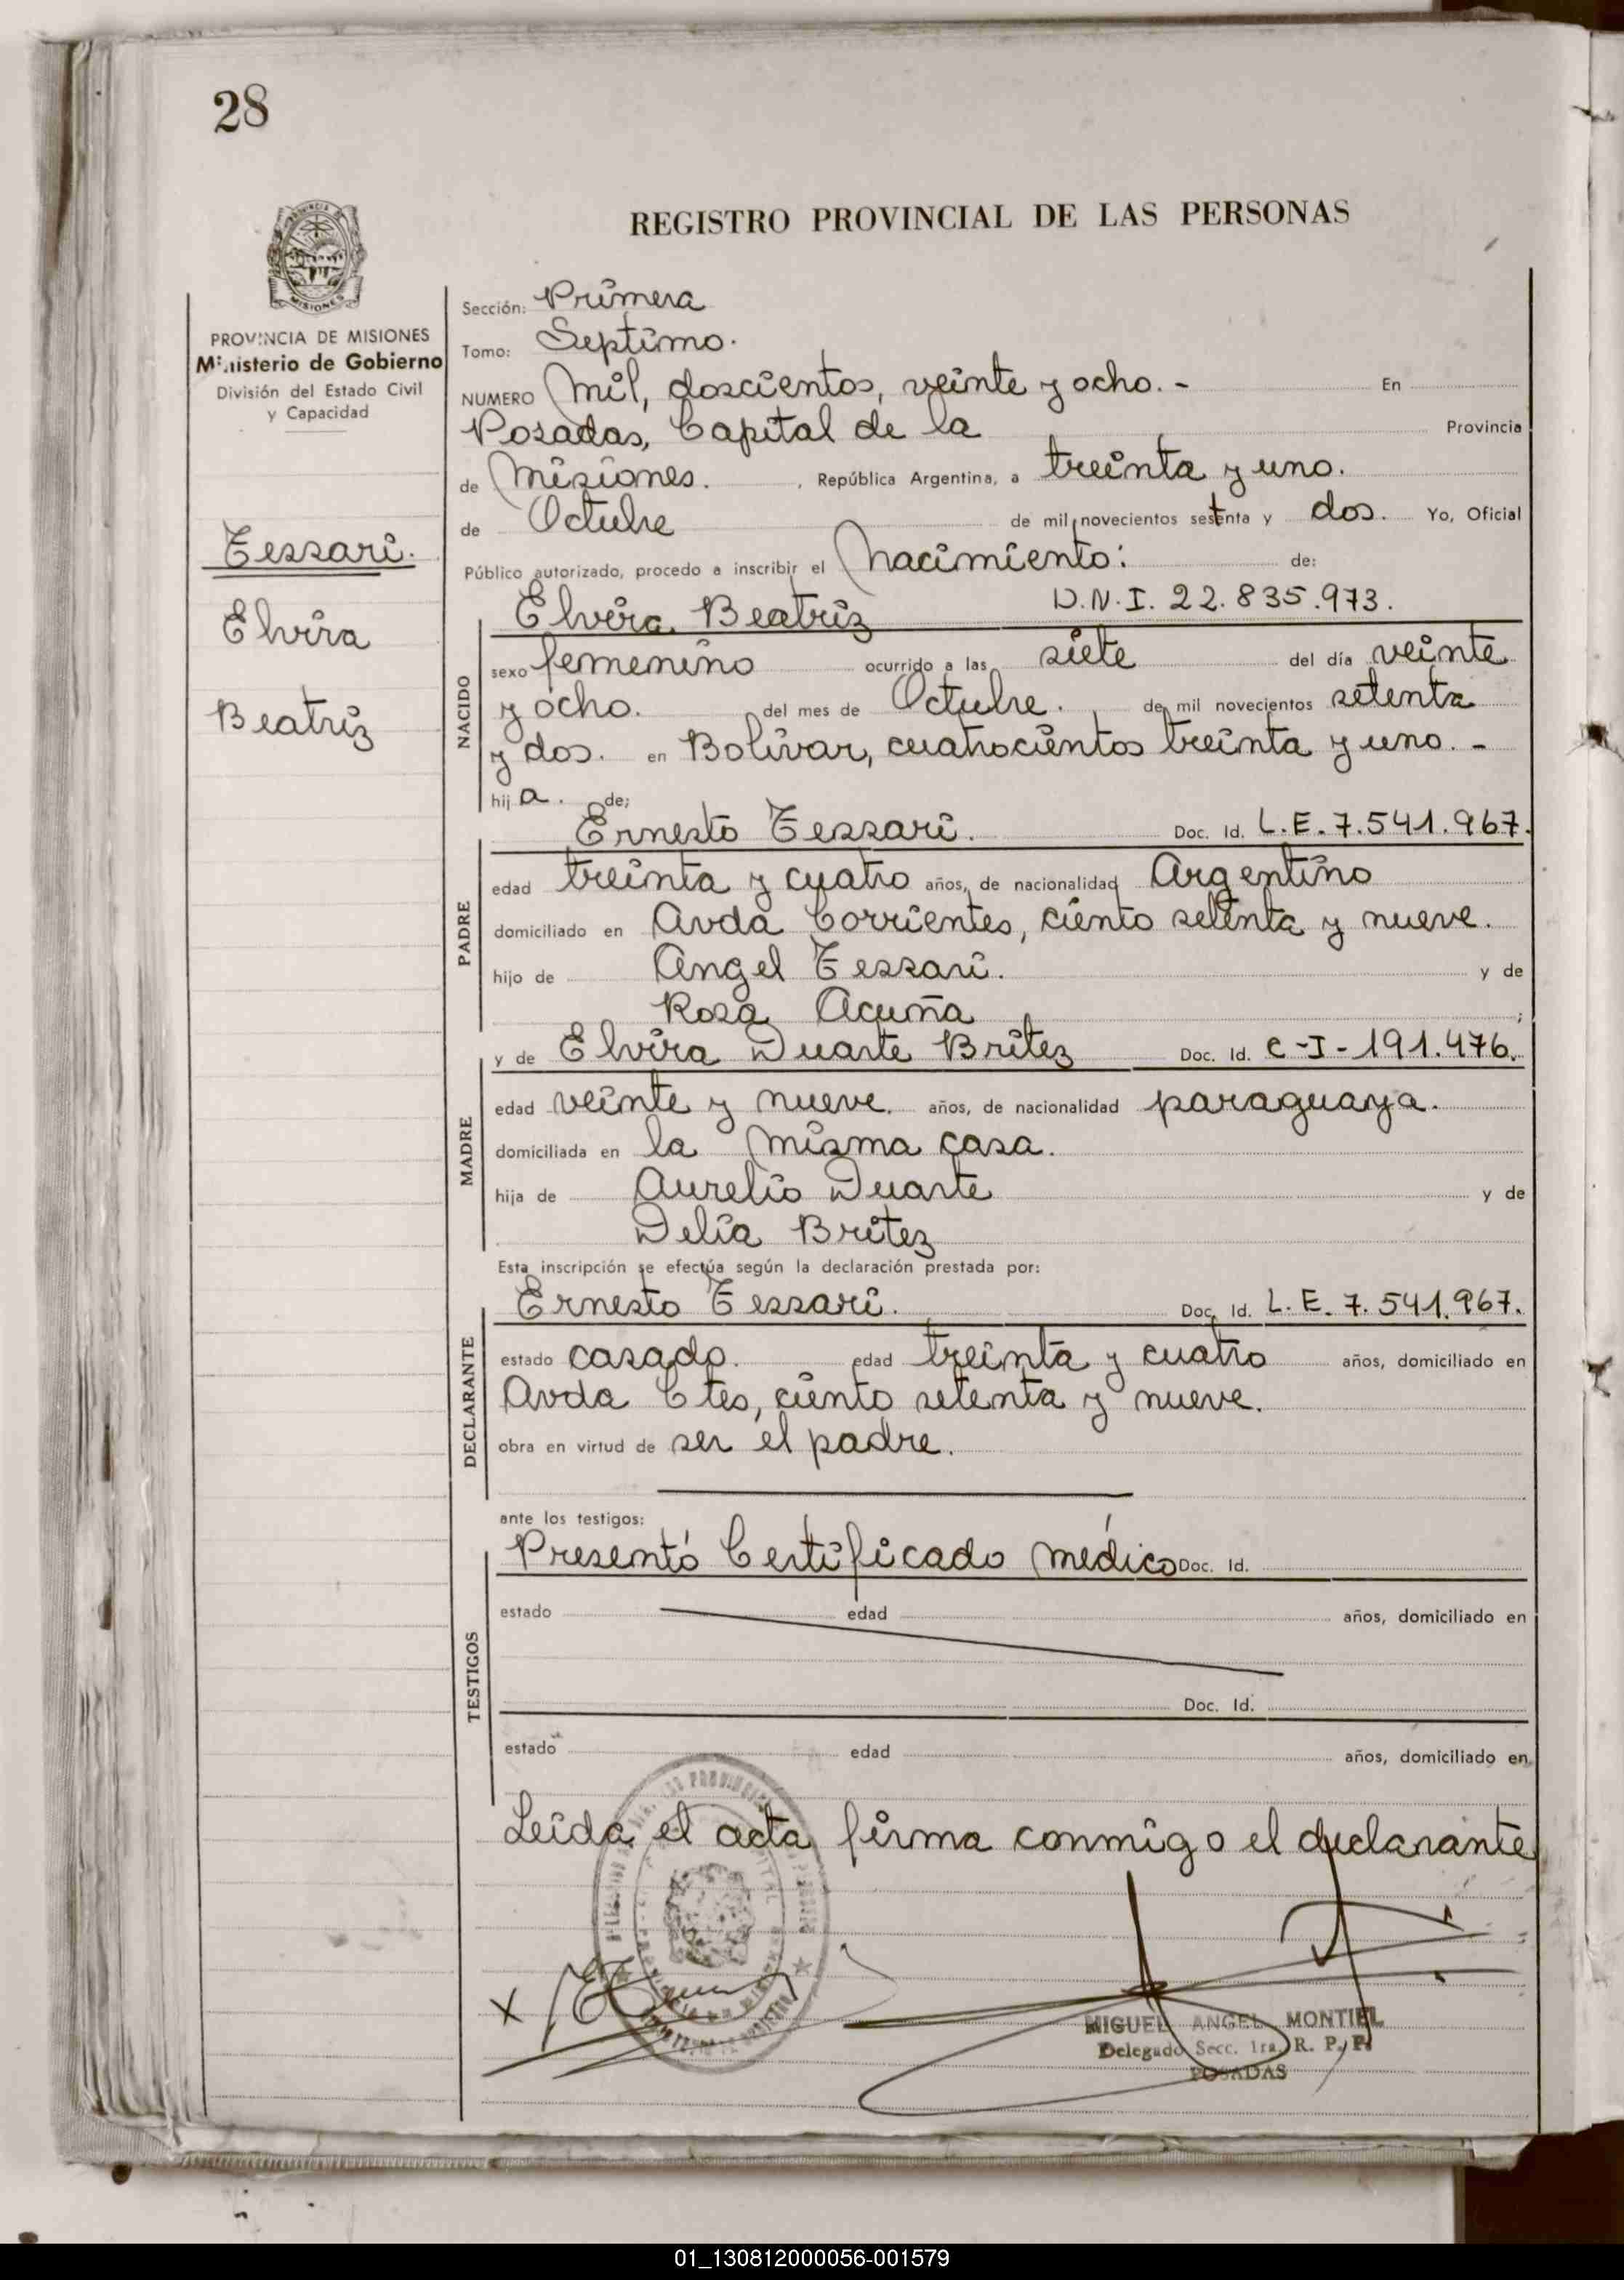 28
REGISTRO PROVINCIAL DE LAS PERSONAS
PROVINCIA DE MISIONES
Ministerio de Gobierno
División del Estado Civil
y Capacidad
Tessari.
Elvira
Beatriz
Sección: Primera
Tomo: Septimo.
NUMERO Mil, doscientos, veinte y ocho. - En
Posadas, Capital de la Provincia
de Misiones. , República Argentina, a treinta y uno.
de Octubre de mil novecientos setenta y dos. Yo, Oficial
Público autorizado, procedo a inscribir el Nacimiento: de:
Elvira Beatriz D.N.I. 22.835.973.
NACIDO
sexo femenino ocurrido a las siete del día veinte
y ocho. del mes de Octubre. de mil novecientos setenta
y dos. en Bolívar, cuatrocientos treinta y uno. -
hija. de;
Ernesto Tessari. Doc. Id. L.E. 7.541.967.
PADRE
edad treinta y cuatro años, de nacionalidad Argentino
domiciliado en Avda Corrientes, ciento setenta y nueve.
hijo de Angel Tessari. y de
Rosa Acuña ;
y de Elvira Duarte Britez Doc. Id. C-I-191.476.
MADRE
edad veinte y nueve. años, de nacionalidad paraguaya.
domiciliada en la misma casa.
hija de Aurelio Duarte y de
Delia Britez
Esta inscripción se efectúa según la declaración prestada por:
Ernesto Tessari. Doc. Id. L.E. 7.541.967.
DECLARANTE
estado casado. edad treinta y cuatro años, domiciliado en
Avda Ctes, ciento setenta y nueve.
obra en virtud de ser el padre.
ante los testigos:
Presentó Certificado médico Doc. Id.
TESTIGOS
estado edad años, domiciliado en
Doc. Id.
estado edad años, domiciliado en
Leida el acta firma conmigo el declarante
X
MIGUEL ANGEL MONTIEL
Delegado Secc. 1ra. R. P. P.
POSADAS
01_130812000056-001579